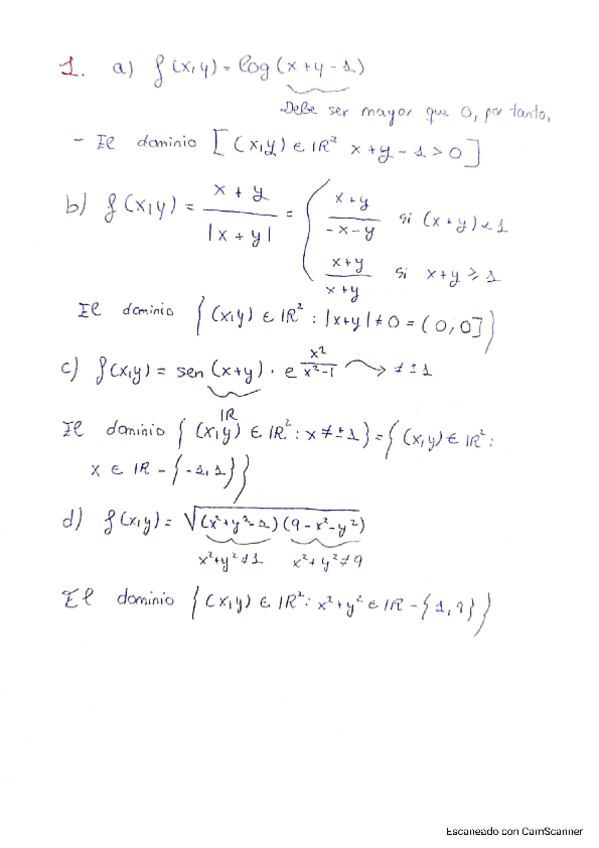 1. a) f(x,y) = log(x+y-1)
Debe ser mayor que 0, por tanto,
- El dominio [(x,y) ∈ IR² x+y-1>0]
b) f(x,y) = (x+y)/|x+y| = { (x+y)/(-x-y) si (x+y)<1
(x+y)/(x+y) si x+y ≥ 1
El dominio {(x,y) ∈ IR² : |x+y| ≠ 0 = (0,0]}
c) f(x,y) = sen(x+y) · e^(x²/(x²-1)) → ≠ ±1
IR
El dominio {(x,y) ∈ IR² : x ≠ ±1} = {(x,y) ∈ IR² :
x ∈ IR - {-1,1}}
d) f(x,y) = √((x²+y²-1)(9-x²-y²))
x²+y² ≠ 1 x²+y² ≠ 9
El dominio {(x,y) ∈ IR² : x²+y² ∈ IR - {1,9}}
Escaneado con CamScanner